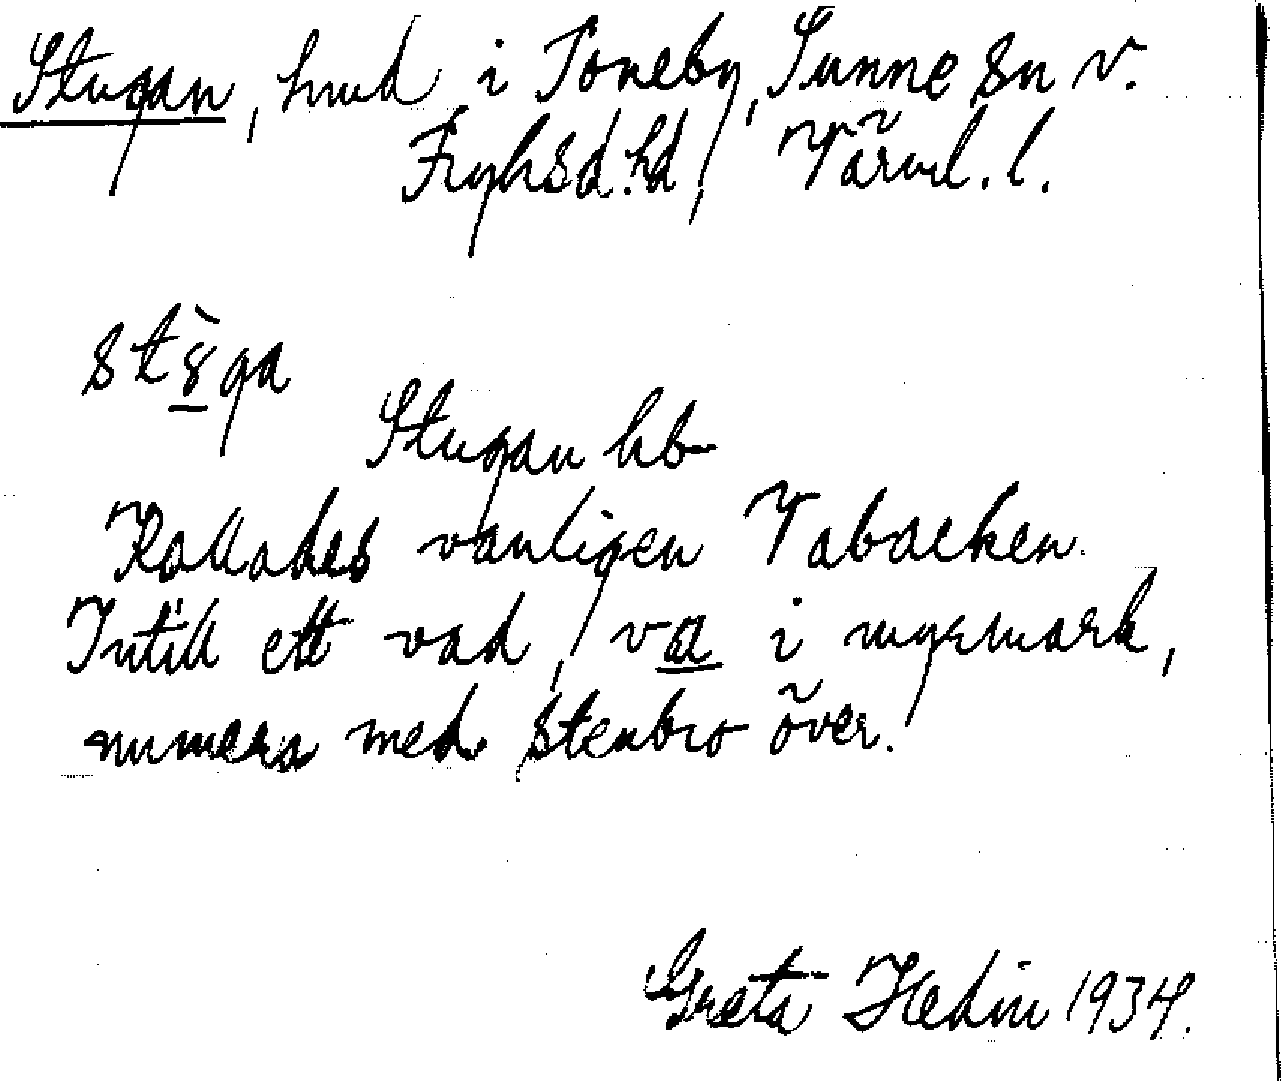 Stugan, hmd i Toneby, Sunne sn v.
Fryksd. hd, Värml. l.
stȣ̀ga
Stugan hb
Kallades vanligen Vabacken.
Intill ett vad, va i myrmark,
numera med stenbro över.
Greta Hedin 1934.